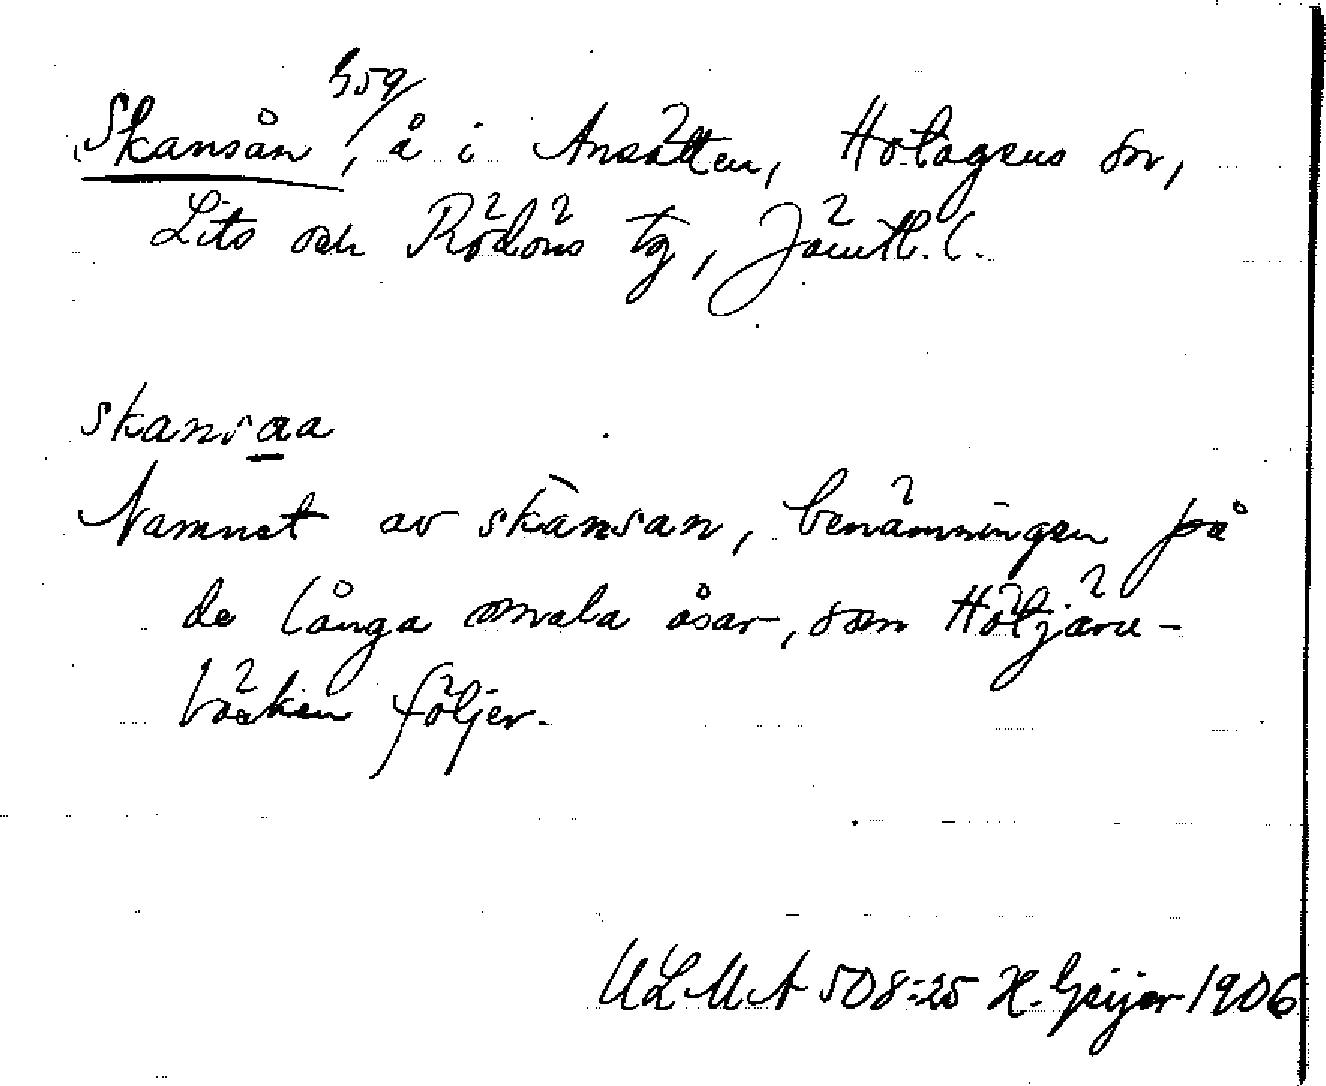 Skansån 359/, å i Ansätten, Hotagens sn,
Lits och Rödöns tg, Jämtl. l.
skansaa
Namnet av skànsan, benämningen på
de långa smala åsar, som Höljäru-
bäcken följer.
ULMA 508:25 H. Geijer 1906